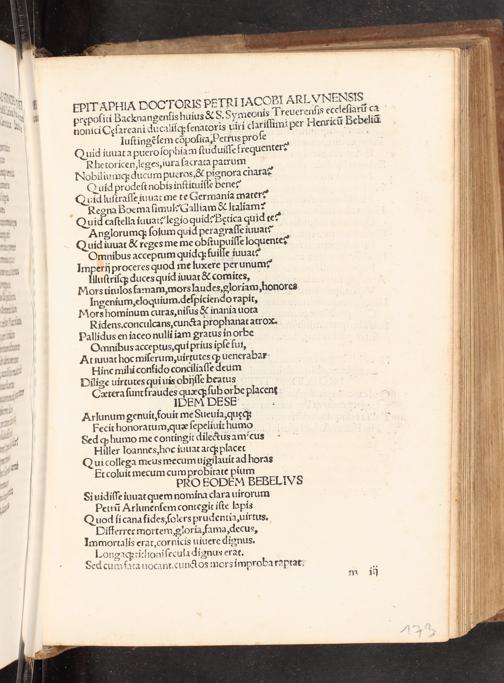 EPITAPHIA DOCTORIS PETRI IACOBI ARLVNENSIS
prępositi Backnangensis huius & S. Symeonis Treuerensis ecclesiarū ca
nonici Cęsareani ducalisq; senatoris uiri clarissimi per Henricū Bebeliū
Iustingēsem cōposita, Petrus pro se
Quid iuuat a puero sophiam studuisse frequenter?
Rhetoricen, leges, iura sacrata patrum
Nobiliumq; ducum pueros, & pignora chara?
Quid prodest nobis instituisse bene?
Quid lustrasse iuuat me te Germania mater?
Regna Boema simul? Galliam & Italiam?
Quid castella iuuat? legio quid? Bętica quid te?
Anglorumq; solum quid peragrasse iuuat?
Quid iuuat & reges me me obstupuisse loquente?
Omnibus acceptum quidq; fuisse iuuat?
Imperij proceres quod me luxere per unum?
Illustrisq; duces quid iuuat & comites,
Mors titulos famam, mors laudes, gloriam, honores
Ingenium, eloquium, despiciendo rapit,
Mors hominum curas, nisus & inania uota
Ridens, conculcans, cuncta prophanat atrox.
Pallidus en iaceo nulli iam gratus in orbe
Omnibus acceptus, qui prius ipse fui,
At iuuat hoc miserum, uirtutes q; uenerabar
Hinc mihi confido conciliasse deum
Dilige uirtutes qui uis obijsse beatus
Cætera sunt fraudes quæq; sub orbe placent
IDEM DE SE
Arlunum genuit, fouit me Sueuia, quęq;
Fecit honoratum, quæ sepeliuit humo
Sed q; humo me contingit dilectus amicus
Hiller Ioannes, hoc iuuat atq; placet
Qui collega meus mecum uigilauit ad horas
Et coluit mecum cum probitate pium
PRO EODEM BEBELIVS
Si uidisse iuuat quem nomina clara uirorum
Petrū Arlunensem contegit iste lapis
Quod si cana fides, solers prudentia, uirtus,
Differret mortem, gloria, fama, decus,
Immortalis erat, cornicis uiuere dignus.
Longaq; tithoni secula dignus erat.
Sed cum fata uocant, cunctos mors improba raptat.
m iij
173